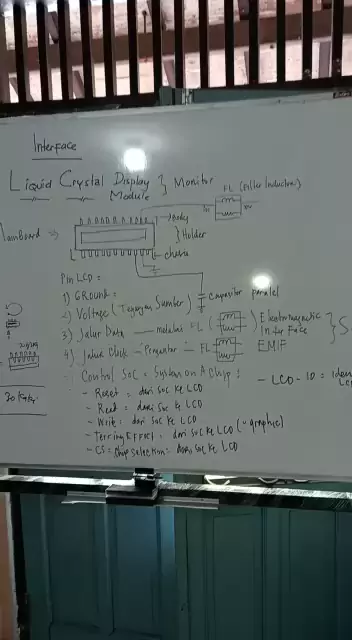 Interface
Liquid Crystal Display } Monitor
Module
FL (Filter Induction)
Body
Holder
Mainboard
chasis
Pin LCD =
1) GROUND =
capasitor paralel
2) Voltage (Tegangan Sumber)
3) Jalur Data — melalui FL
Electromagnetic
Interface
EMIF
4) Jalur Clock - Pengantar - FL
zigzag
Control SoC = System on A Chip :
- LCD - ID =
- Reset = dari SoC ke LCD
- Read = dari SoC ke LCD
- Write = dari SoC ke LCD
- Tearing Effect = dari SoC ke LCD (- graphic)
- CS = chip selection = dari SoC ke LCD